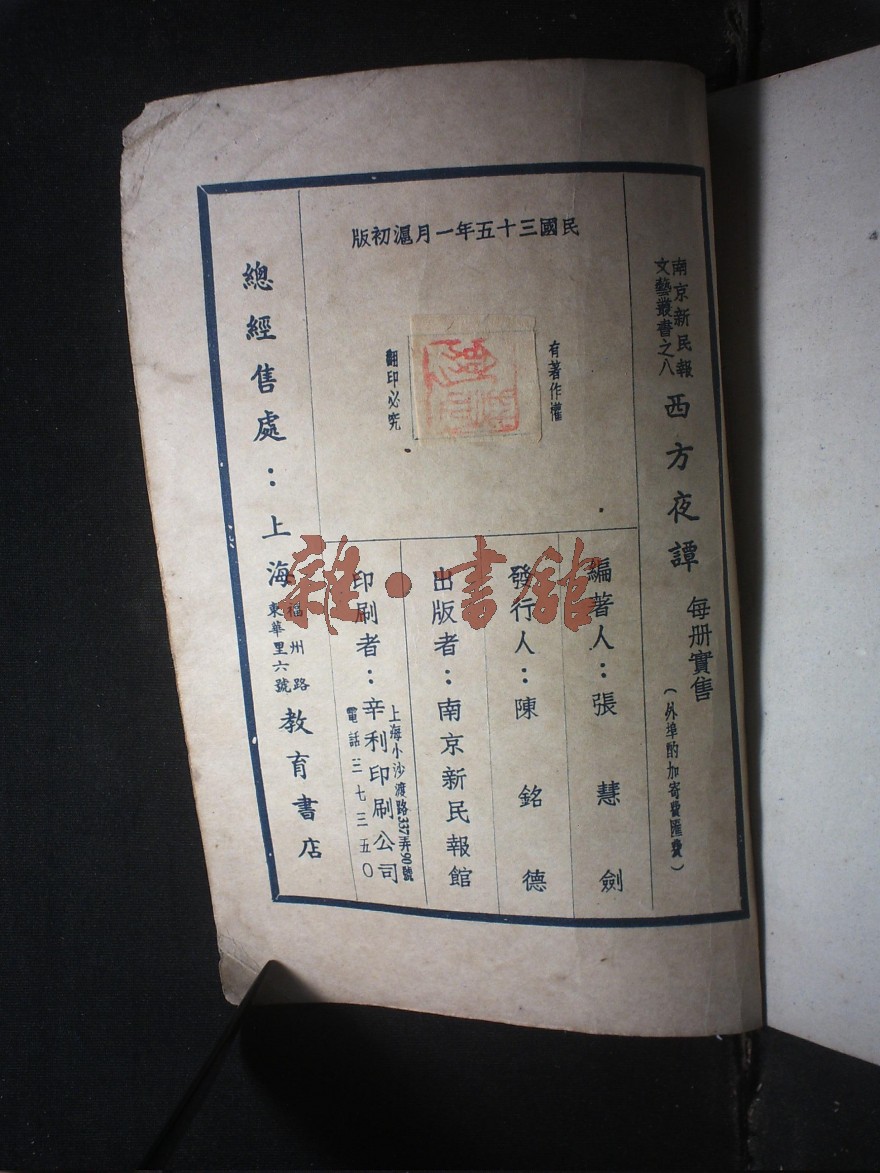 民國三十五年一月滬初版
南京新民報
文藝叢書之八
西方夜譚
每册實售
(外埠酌加寄費匯費)
有著作權
翻印必究
編著人:張慧劍
發行人:陳銘德
出版者:南京新民報館
印刷者:辛利印刷公司
上海小沙渡路337弄90號
電話三七三五〇
總經售處:上海
福州路
東華里六號
教育書店
雜·書館